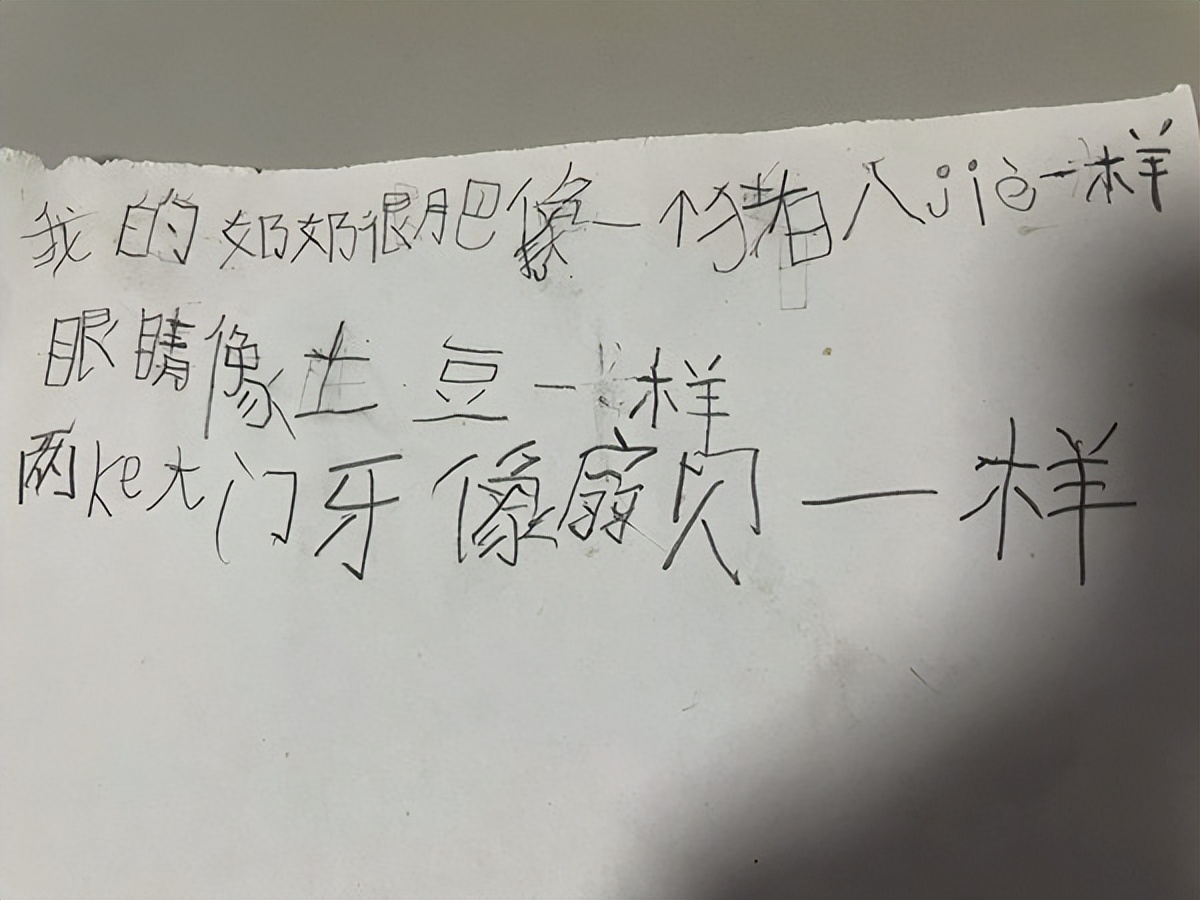 我的奶奶很肥像一个猪八jiè一样
眼睛像土豆一样
两ke大门牙像扇贝一样